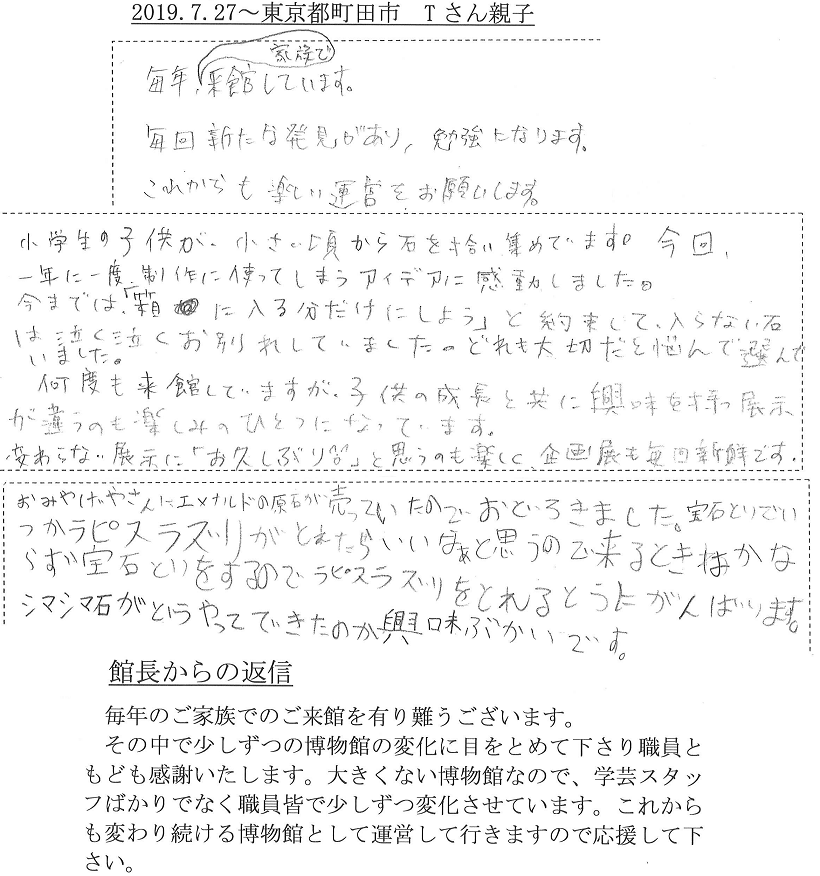 2019.7.27～東京都町田市　Tさん親子
家族で
毎年、来館しています。
毎回新たな発見があり、勉強になります。
これからも楽しい運営をお願いします。
小学生の子供が、小さい頃から石を拾い集めてます。今回、
一年に一度、制作に使ってしまうアイデアに感動しました。
今までは、「箱に入る分だけにしよう」と約束して、入らない石
は泣く泣くお別れしていました。どれも大切だと悩んで選んで
いました。
何度も来館していますが、子供の成長と共に興味を持つ展示
が違うのも楽しみのひとつになっています。
変わらない展示に「お久しぶり」と思うのも楽しく、企画展も毎回新鮮です。
おみやげやさんにエメナルドの原石が売っていたのでおどろきました。宝石とりでい
つかラピスラズリがとれたらいいなぁと思うので来るときはかな
らず宝石とりをするのでラピスラズリをとれるとうにがんばります。
シマシマ石がどうやってできたのか興味ぶかいです。
館長からの返信
毎年のご家族でのご来館を有り難うございます。
その中で少しずつの博物館の変化に目をとめて下さり職員と
もども感謝いたします。大きくない博物館なので、学芸スタッ
フばかりでなく職員皆で少しずつ変化させています。これから
も変わり続ける博物館として運営して行きますので応援して下
さい。